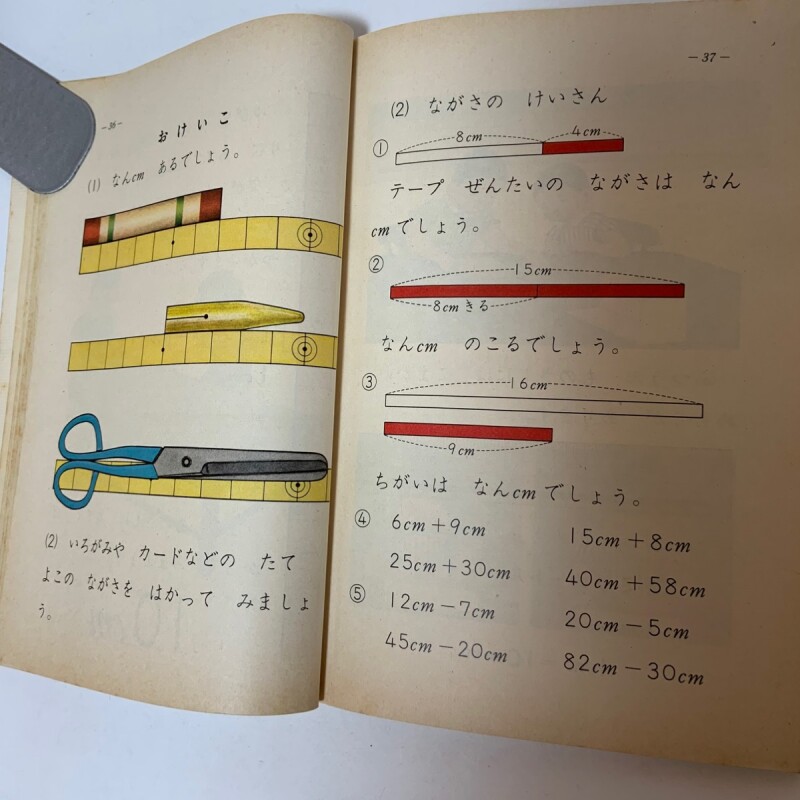 —36—
おけいこ
(1) なんcm あるでしょう。
(2) いろがみや カードなどの たて
よこの ながさを はかって みましょ
う。
—37—
(2) ながさの けいさん
① 8cm 4cm
テープ ぜんたいの ながさは なん
cmでしょう。
② 15cm
8cmきる
なんcm のこるでしょう。
③ 16cm
9cm
ちがいは なんcmでしょう。
④ 6cm+9cm 15cm+8cm
25cm+30cm 40cm+58cm
⑤ 12cm−7cm 20cm−5cm
45cm−20cm 82cm−30cm